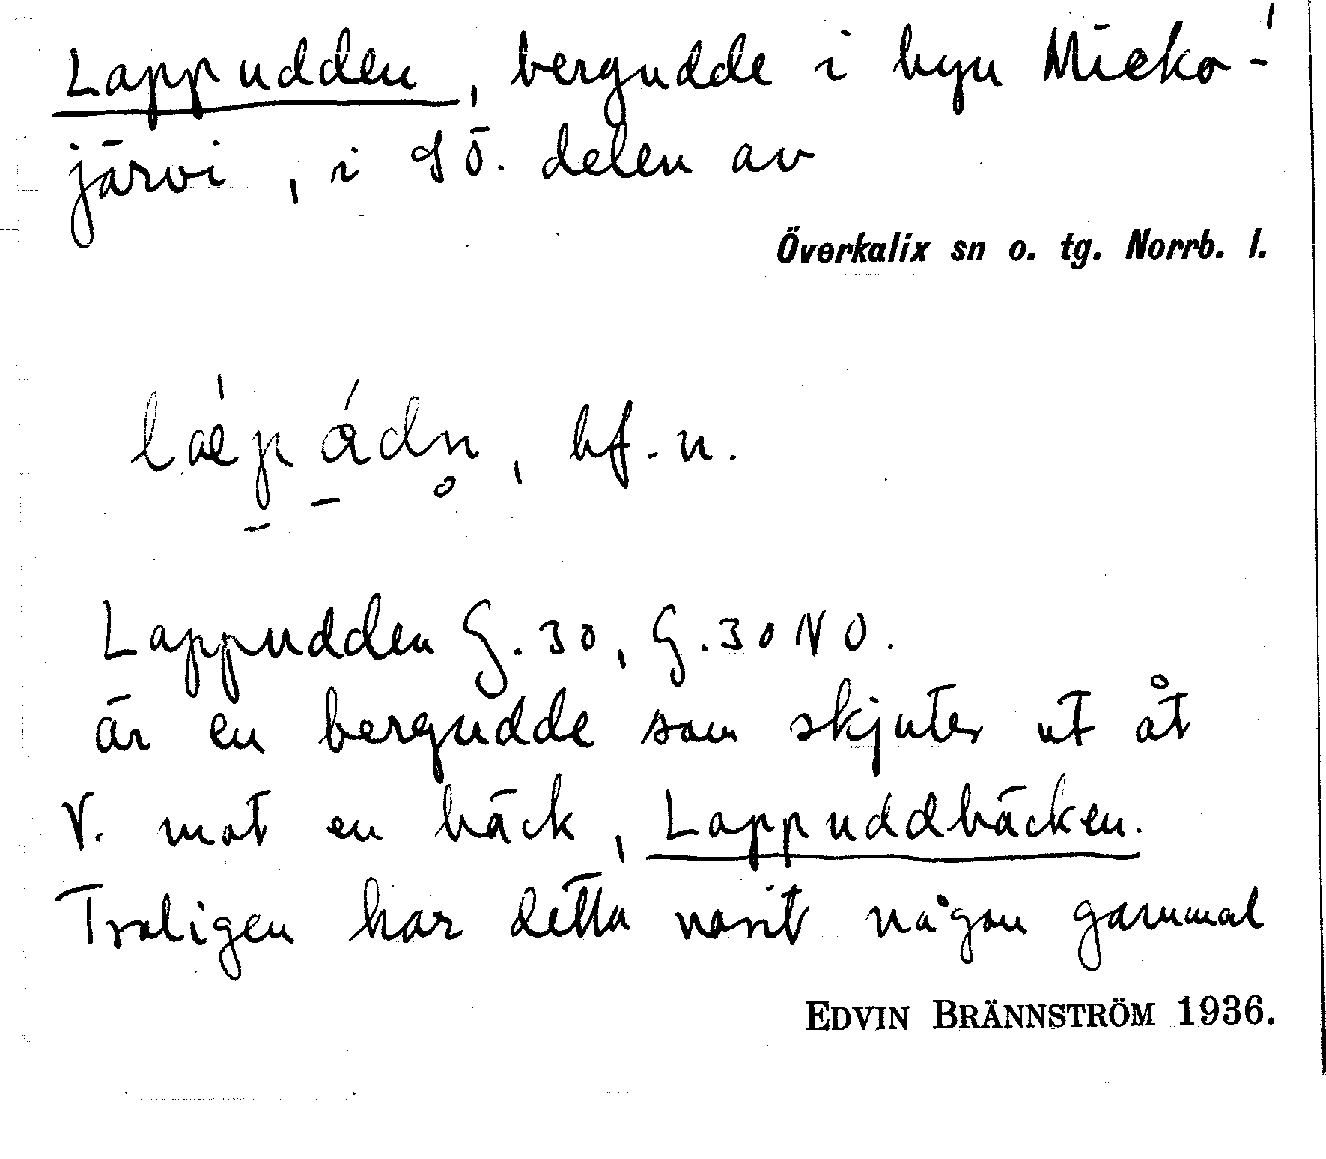 Lappudden, bergudde i byn Mieko-
järvi, i SÖ. delen av
Överkalix sn o. tg. Norrb. l.
láep ádn, bf. n.
Lappudden G. 30, G. 30 NO.
är en bergudde som skjuter ut åt
V. mot en bäck, Lappuddbäcken.
Troligen har detta varit någon gammal
EDVIN BRÄNNSTRÖM 1936.